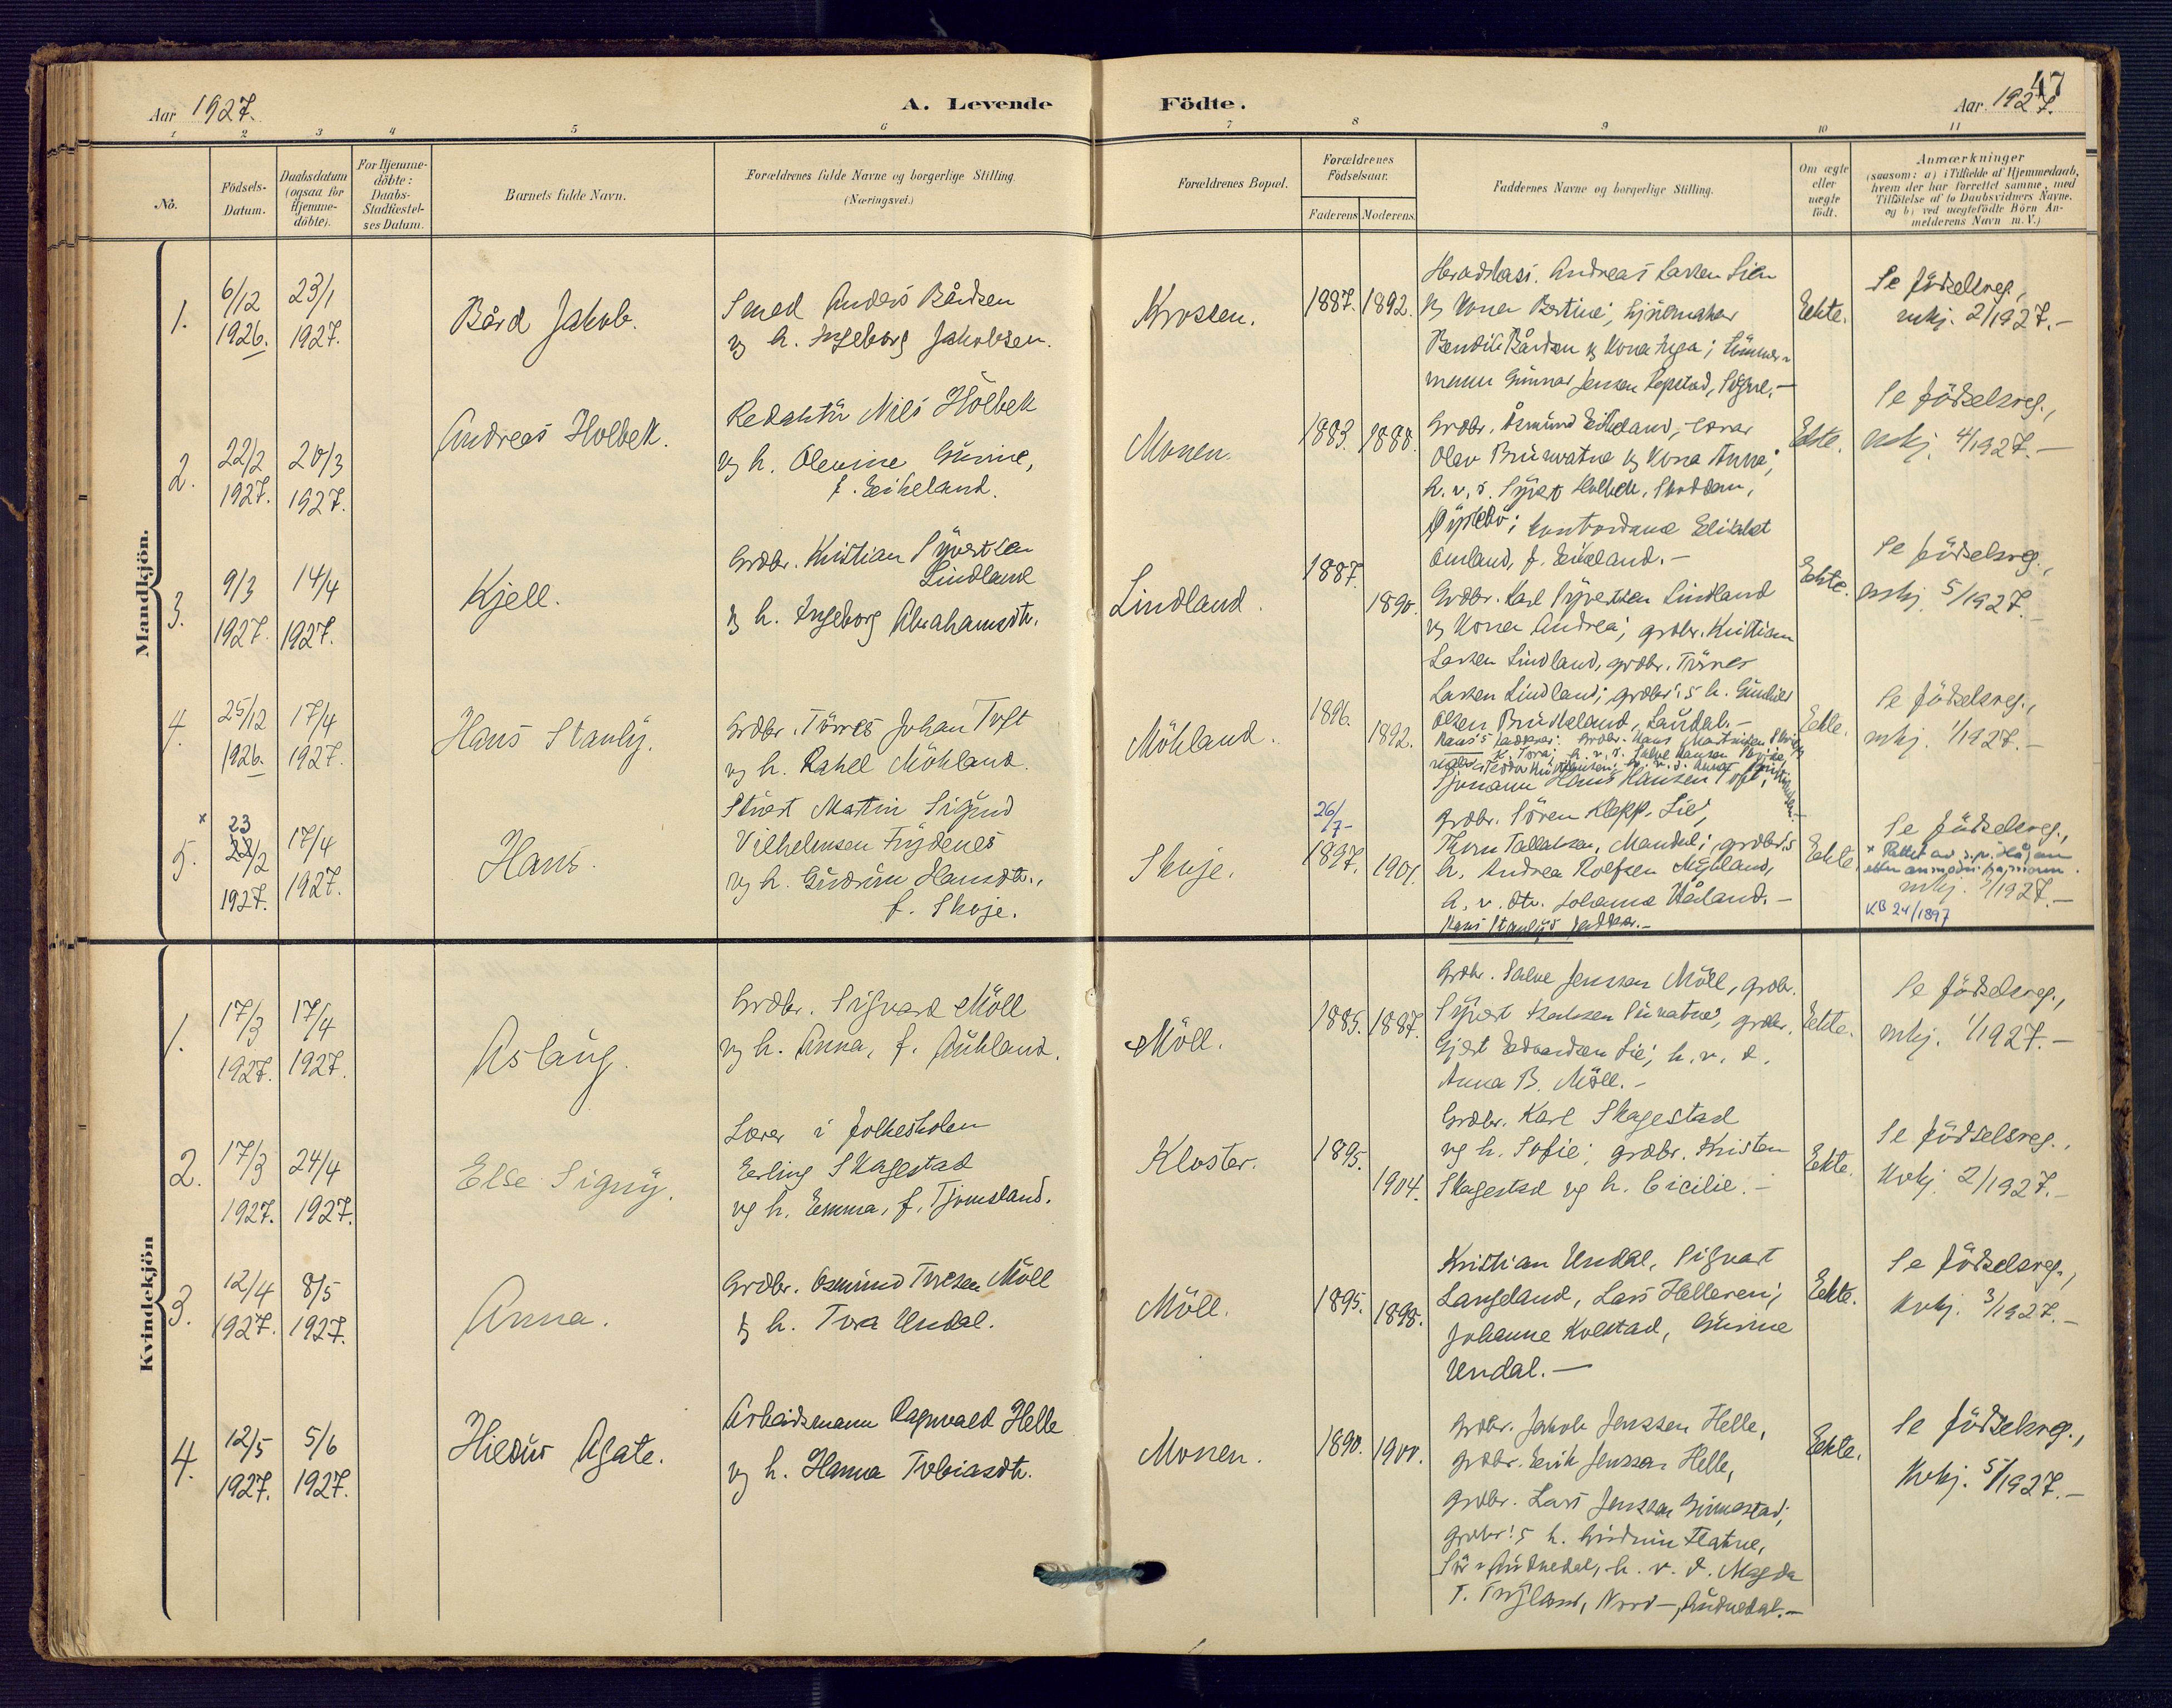 Aar 1927.
A. Levende
Födte.
47
Aar 1927.
1 2 3 4 5 6 7 8 9 10 11
No.
Födsels-
Datum.
Daabsdatum
(ogsaa for
Hjemme-
döbte).
For Hjemme-
döbte:
Daabs-
Stadfæstel-
ses Datum.
Barnets fulde Navn.
Forældrenes fulde Navne og borgerlige Stilling.
(Næringsvei.)
Forældrenes Bopæl.
Forældrenes
Födselsaar.
Faderens
Moderens.
Faddernes Navne og borgerlige Stilling.
Om ægte
eller
uægte
födt.
Anmærkninger
(saasom: a) i Tilfælde af Hjemmedaab,
hvem der har forrettet samme, med
Tilföielse af to Daabsvidners Navne,
og b) ved uægtefödte Börn An-
melderens Navn m. V.)
Mandkjön.
1.
6/12
1926.
23/1
1927.
Bård Jakob.
Smed Anders Bårdsen
og h. Ingeborg Jakobsen.
Krossen.
1887.
1892.
Andreas Larsen Lien
og kona Bertine;
Bendik Bårdsen og kona Inga; tömmer-
mann Gunnar Jensen Repstad, Sögne.-
Ekte.
Se födselsreg.,
mkj. 2/1927.-
2.
22/2
1927.
20/3
1927.
Andreas Holbek.
Redaktör Nils Hölbek
og h. Olevine Gurine,
f. Eikeland.
Monen.
1883.
1888.
Grdbr. Åsmund Eikeland,
Olav Bruvatne og kona Anna;
h. v. s. Syvert Holbek,
Öyslebö; kontordame Elisabet
Omland, f. Eikeland.-
Ekte.
Se födselsreg.,
mkj. 4/1927.-
3.
9/3
1927.
14/4
1927.
Kjell.
Grdbr. Kristian Syvertsen
Lindland
og h. Ingeborg Abrahamsdtr.
Lindland.
1887.
1890.
Grdbr. Karl Syvertsen Lindland
og kona Andrea; grdbr. Kristian
Larsen Lindland, grdbr. Törres
Larsen Lindland; grdbr's h. Gunhild
Olsen Bruskeland, Laudal.-
Ekte.
Se födselsreg.,
mkj. 5/1927.-
4.
25/12
1926.
17/4
1927.
Hans Stanly.
Grdbr. Törres Johan Toft
og h. Rakel Möhland.
Möhland.
1896.
1892.
Hans's faddere: Grdbr. Hans Martinsen Skoje
Sjömann Hans Hansen Toft,
Ekte.
Se födselsreg.,
mkj. 1/1927.-
5.
x
23
22/2
1927.
17/4
1927.
Hans.
Stuert Martin Sigurd
Vilhelmsen Frydenes
og h. Gudrun Hansdtr.,
f. Skoje.
Skoje.
26/7-
1897.
1901.
Grdbr. Sören Klepp, Lie,
Thom Tallaksen, Mandal; grdbr's
h. Andrea Rolfsen Myhland,
h. v. dtr. Johanna Håland.-
Hans Stanlys faddere.-
Ekte.
Se födselsreg.,
x Rettet av s.pr. Håland
mkj. /1927.-
KB 24/1897
Kvindekjön
1.
17/3
1927.
17/4
1927.
Aslaug.
Grdbr. Sigvard Möll
og h. Anna, f. Aukland.
Möll.
1885.
1887.
Grdbr. Salve Jensen Möll, grdbr.
Syvert Isaksen Survatne, grdbr.
Gjert Edvardsen Lie; h. v. d.
Anna B. Möll.-
Ekte.
Se födselsreg.,
mkj. 1/1927.-
2.
17/3
1927.
24/4
1927.
Else Signy.
Lærer i folkeskolen
Erling Skagestad
og h. Emma, f. Tjomsland.
Kloster.
1895.
1904.
Grdbr. Karl Skagestad
og h. Sofie; grdbr. Kristen
Skagestad og h. Cicilie.-
Ekte.
Se födselsreg.,
kvkj. 2/1927.-
3.
12/4
1927.
8/5
1927.
Anna.
Grdbr. Osmund Toresen Möll
og h. Tora Undal.
Möll.
1895.
1898.
Kristian Undal, Sigvart
Langeland, Lars Helleren;
Johanne Kolstad, Gurine
Undal.-
Ekte.
Se födselsreg.,
kvkj. 3/1927.-
4.
12/5
1927.
5/6
1927.
Hildur Agate.
Arbeidsmann Ragnvald Helle
og h. Hanna Tobiasdtr.
Monen.
1890.
1900.
Grdbr. Jakob Jenssen Helle,
grdbr. Erik Jenssen Helle,
grdbr. Lars Jenssen Gimmestad;
grdbr's h. Gudrun Flatne,
Sör-Audnedal, h. v. d. Magda
T. Tryland, Nord-Audnedal.-
Ekte.
Se födselsreg.,
kvkj. 5/1927.-